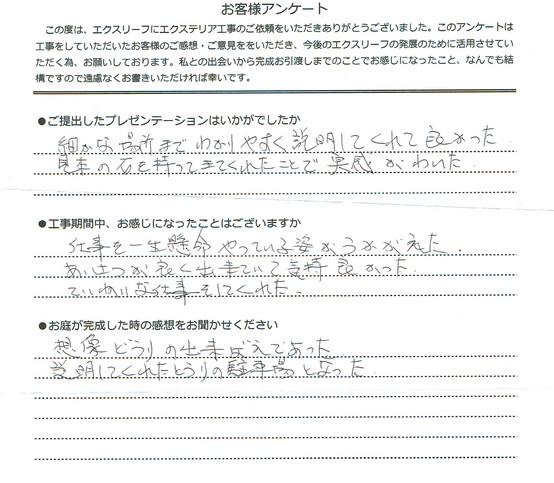 お客様アンケート
この度は、エクスリーフにエクステリア工事のご依頼をいただきありがとうございました。このアンケートは
工事をしていただいたお客様のご感想・ご意見をいただき、今後のエクスリーフの発展のために活用させてい
ただく為、お願いしております。私との出会いから完成お引渡しまでのことでお感じになったこと、なんでも結
構ですので遠慮なくお書きいただければ幸いです。
●ご提出したプレゼンテーションはいかがでしたか
細かな場所までわかりやすく説明してくれて良かった
見本の石を持ってきてくれたことで実感がわいた
●工事期間中、お感じになったことはございますか
仕事を一生懸命やっている姿がうかがえた.
あいさつが良く出来ていて気持良かった.
ていねいな仕事をしてくれた.
●お庭が完成した時の感想をお聞かせください
想像どうりの出来ばえであった
説明してくれたとうりの駐車場となった